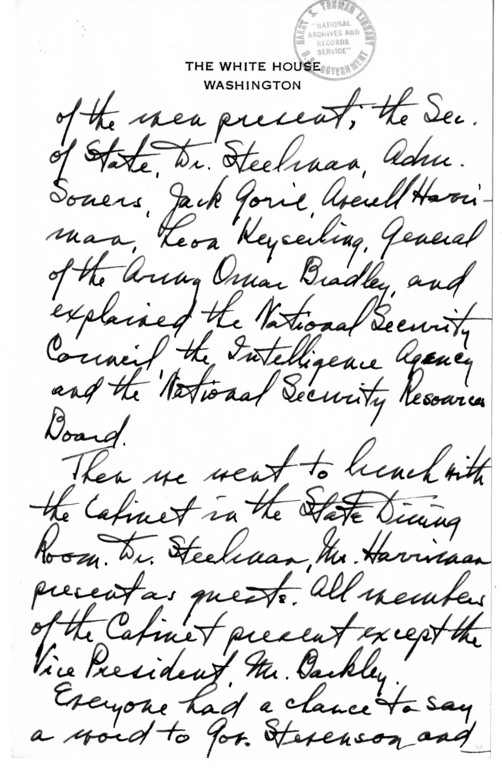 HARRY S. TRUMAN LIBRARY
"NATIONAL
ARCHIVES AND
RECORDS
SERVICE"
U.S. GOVERNMENT
THE WHITE HOUSE
WASHINGTON
of the men present; the Sec.
of State, Dr. Steelman, Adm.
Souers, Jack Gorie, Averell Harri-
man, Leon Keyserling, General
of the Army Omar Bradley, and
explained the National Security
Council, the Intelligence Agency
and the National Security Resources
Board.
Then we went to lunch with
the Cabinet in the State Dining
Room. Dr. Steelman, Mr. Harriman
present as guests. All members
of the Cabinet present except the
Vice President, Mr. Barkley.
Everyone had a chance to say
a word to Gov. Stevenson and